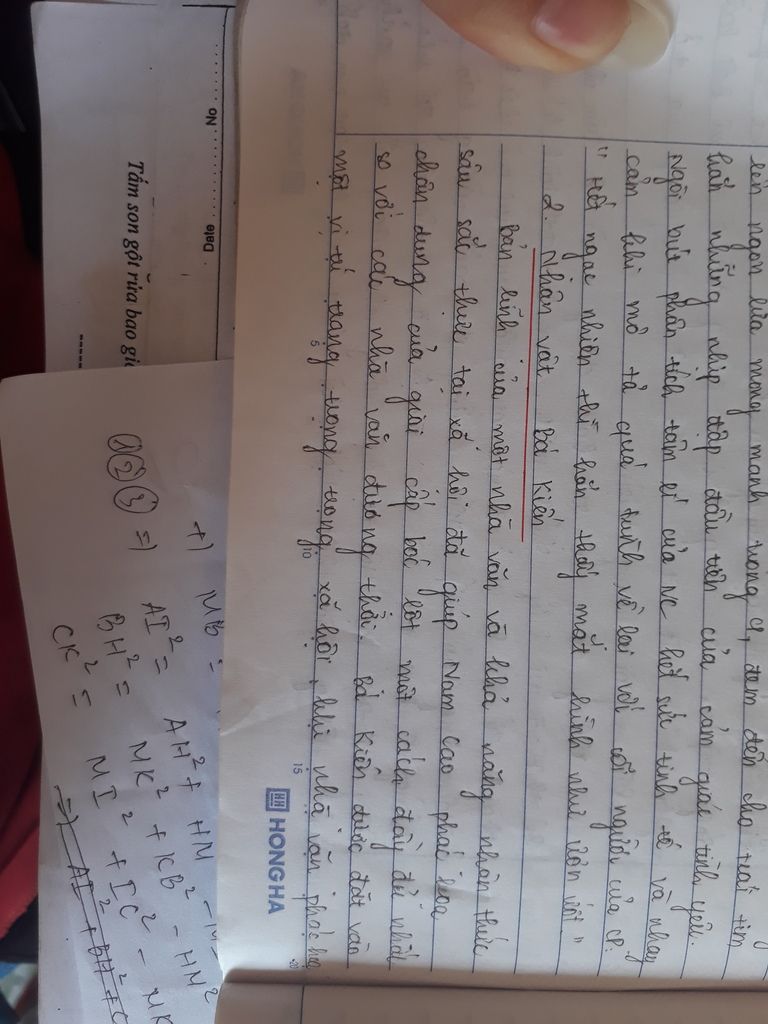 lên ngọn lửa mong manh trong CP, đem đến cho trái tim
hắn những nhịp đập đầu tiên của cảm giác tình yêu.
Ngòi bút phân tích tâm lí của NC hết sức tinh tế và nhạy
cảm khi mô tả quá trình về lại với cõi người của CP.
"Hết ngạc nhiên thì hắn thấy mắt hình như ươn ướt"
2. Nhân vật Bá Kiến
Bản lĩnh của một nhà văn và khả năng nhận thức
sâu sắc thực tại xã hội đã giúp Nam Cao phác họa
chân dung của giai cấp bóc lột một cách đầy đủ nhất
so với các nhà văn đương thời. Bá Kiến được đặt vào
một vị trí trang trọng trong xã hội, khi nhà văn phác họa
5
10
15
20
HH HONGHA
No
Date
Tắm son gột rửa bao giờ
+) MB =
①②③ =) AI² = AH² + HM
BH² = MK² + KB² - HM²
CK² = MI² + IC² - MK
=) AI² + BH² + C